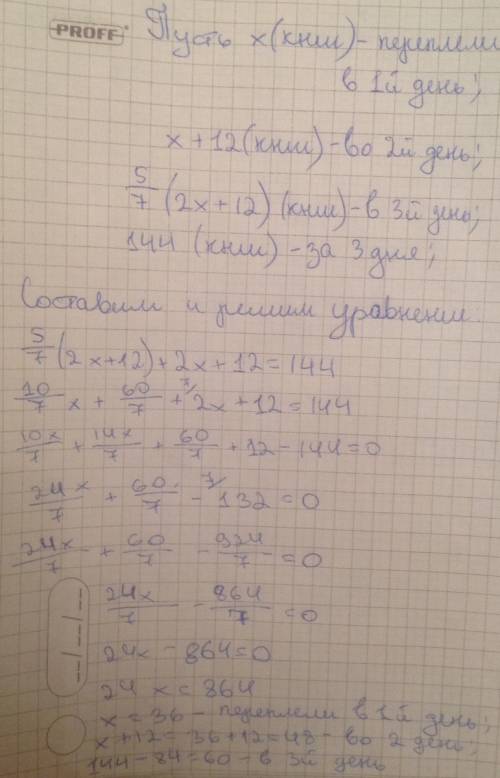 PROFF
Пусть x(книг) - переплели
в 1й день;
x + 12(книг) - во 2й день;
5/7 (2x+12) (книг) - в 3й день;
144 (книг) - за 3 дня;
Составим и решим уравнение
5/7 (2x+12) + 2x + 12 = 144
10/7 x + 60/7 + 2x + 12 = 144
10x/7 + 14x/7 + 60/7 + 12 - 144 = 0
24x/7 + 60/7 - 132 = 0
24x/7 + 60/7 - 924/7 = 0
24x/7 - 864/7 = 0
24x - 864 = 0
24 x = 864
x = 36 - переплели в 1й день;
x + 12 = 36 + 12 = 48 - во 2 день;
144 - 84 = 60 - в 3й день